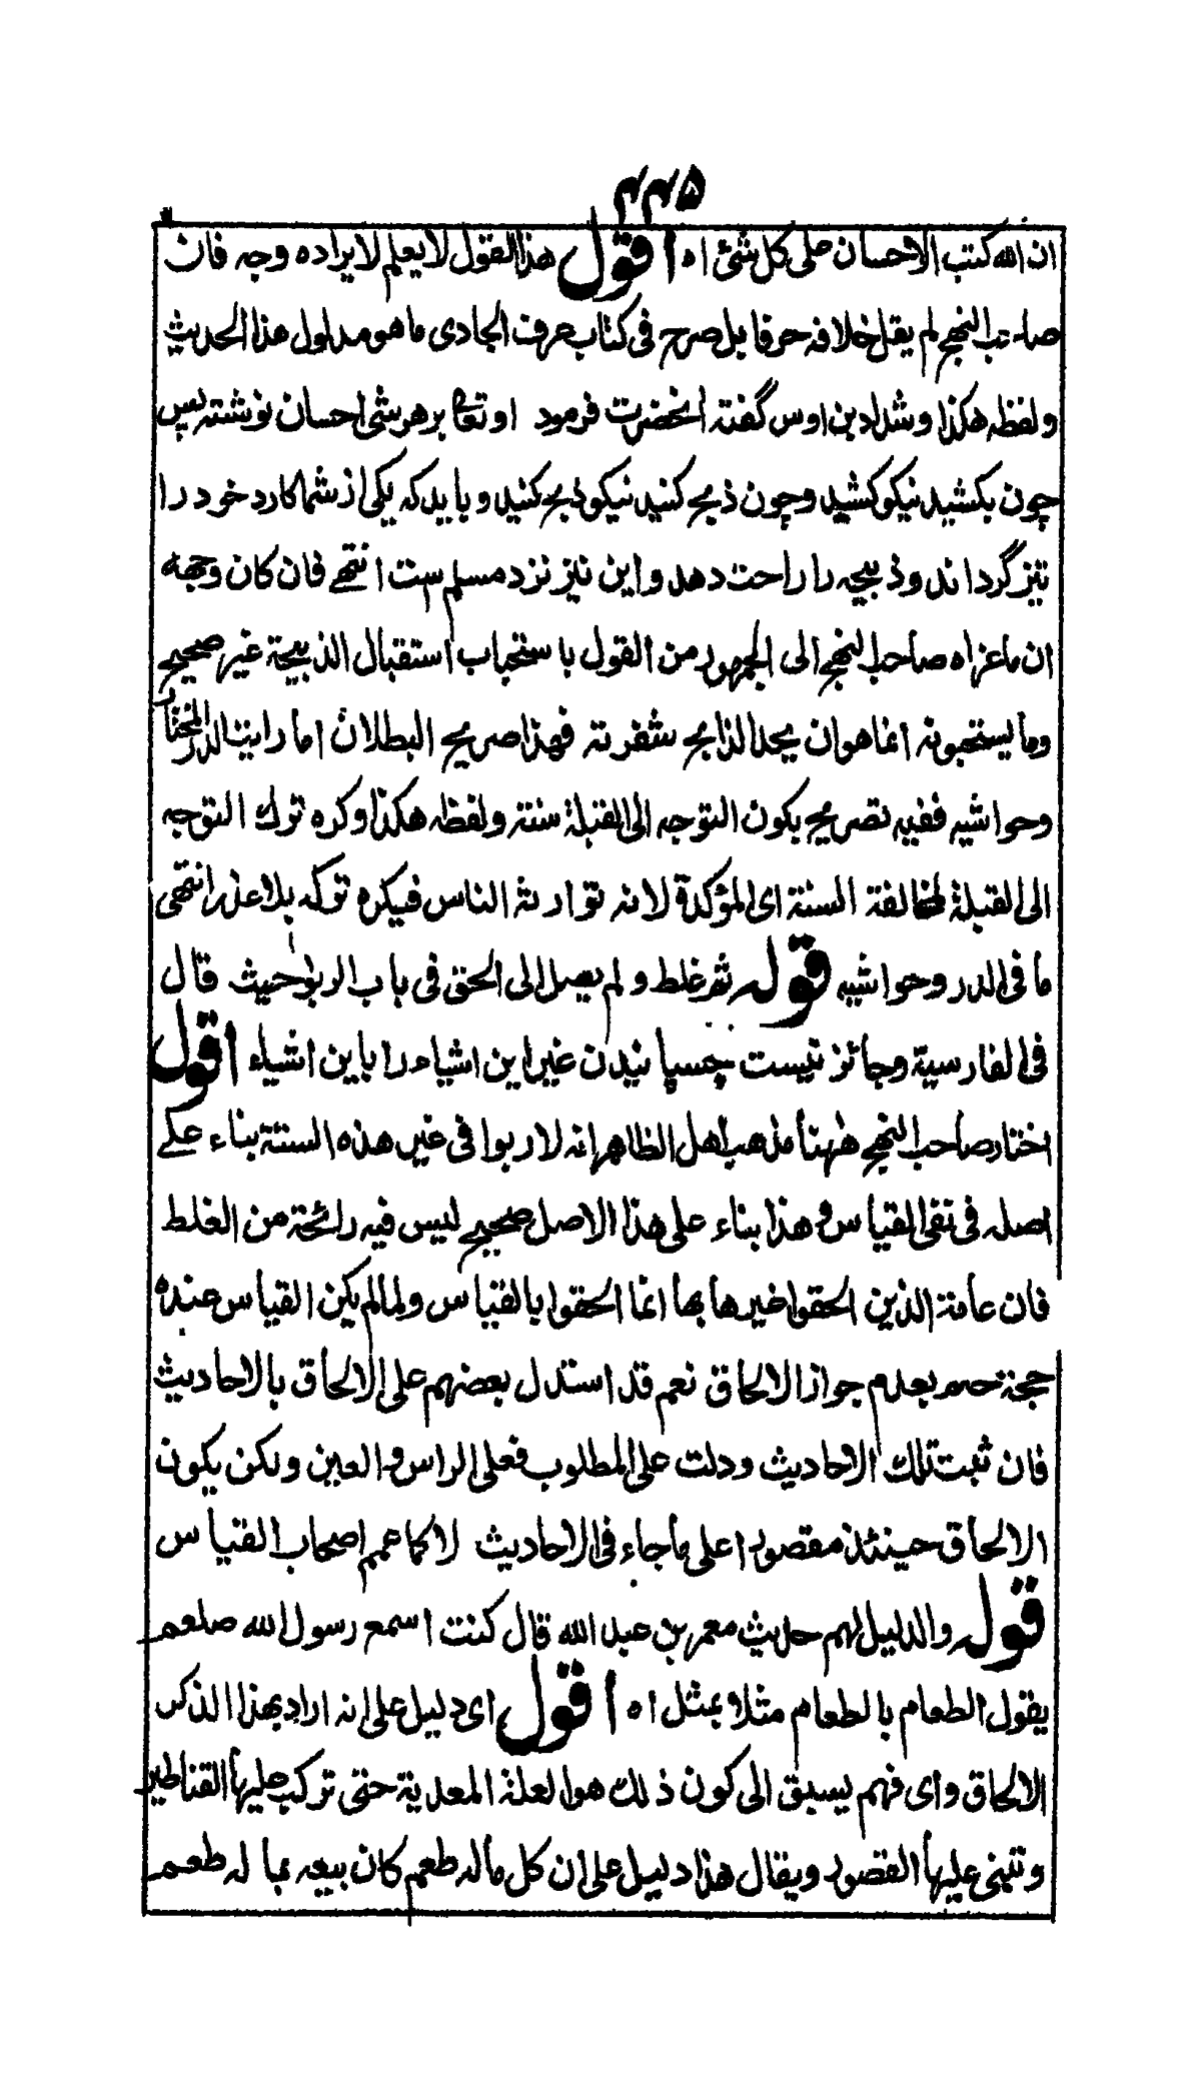 ۴۴۵
ان الله كتب الاحسان على كل شئ اه اقول هذا القول لا يعلم لا يراده وجه فان
صاحب النهج لم يقل خلافه حرفا بل صرح فى كتاب عرف الجادى ما هو مدلول هذا الحديث
ولفظه هكذا وشداد بن اوس گفته انحضرت فرمود او تعالى بر هر شى احسان نوشته پس
چون بكشيد نيكو كشيد وچون ذبح كنيد نيكو ذبح كنيد و بايد كه يكى از شما كارد خود را
تيز گرداند و ذبيحه را راحت دهد و اين نيز نزد مسلم ست انتهى فان كان وجهه
ان ما عزاه صاحب النهج الى الجمهور من القول باستحباب استقبال الذبيحة غير صحيح
وما يستحبونه انما هو ان يحد الذابح شفرته فهذا صريح البطلان اما رايت الدر المختار
وحواشيه ففيه تصريح بكون التوجه الى القبلة سنة ولفظه هكذا وكره ترك التوجه
الى القبلة لمخالفة السنة اى المؤكدة لانه توارثه الناس فيكره تركه بلا عذر انتهى
ما فى الدر وحواشيه قوله ثم غلط و لم يصل الى الحق فى باب الربوا حيث قال
فى الفارسية وجائز نيست چسپانيدن غير اين اشياء را باين اشياء اقول
اختار صاحب النهج ههنا مذهب اهل الظاهر انه لا ربوا فى غير هذه الستة بناء على
اصله فى نفى القياس و هذا بناء على هذا الاصل صحيح ليس فيه رائحة من الغلط
فان عامة الذين الحقوا غيرها بها انما الحقوا بالقياس ولما لم يكن القياس عنده
حجة حكم بعدم جواز الالحاق نعم قد استدل بعضهم على الالحاق بالاحاديث
فان ثبت تلك الاحاديث ودلت على المطلوب فعلى الراس و العين ولكن يكون
الالحاق حينئذ مقصورا على ما جاء فى الاحاديث لا كما عمم اصحاب القياس
قوله والدليل لهم حديث معمر بن عبد الله قال كنت اسمع رسول الله صلعم
يقول الطعام بالطعام مثلا بمثل اه اقول اى دليل على انه اراد بهذا الذكر
الالحاق واى فهم يسبق الى كون ذلك هو العلة المعدية حتى تركب عليها القناطير
وتبنى عليها القصور ويقال هذا دليل على ان كل ما له طعم كان بيعه بما له طعم